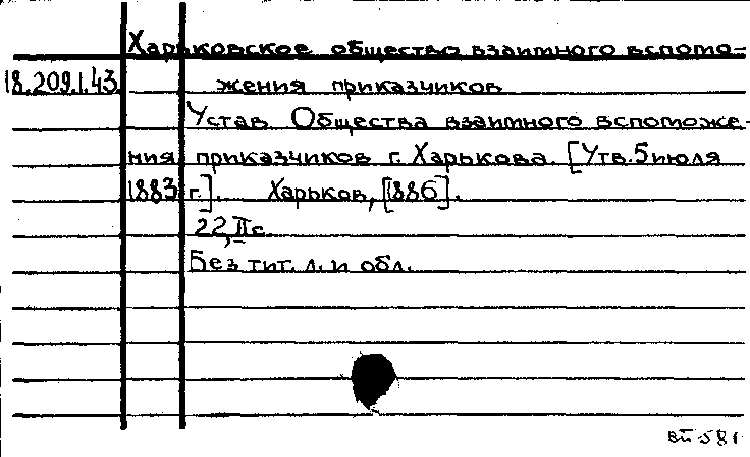 Харьковское общество взаимного вспомо-
18.209.1.43. жения приказчиков
Устав Общества взаимного вспоможе-
ния приказчиков г. Харькова. [Утв. 5 июля
1883 г.]. Харьков, [1886].
22, II с.
Без тит. л. и обл.
ВП 581